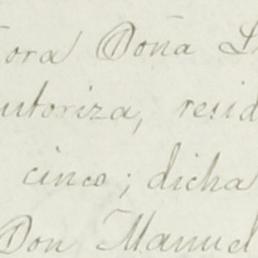 ora Doña
utoriza, resid
cinco; dicha
Don Manuel